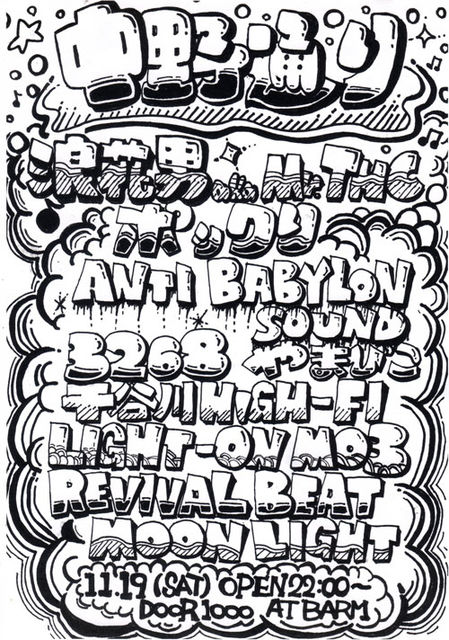 中野通り
浪花男 a.k.a. Mr.THC
ポックリ
ANTI BABYLON
SOUND
3268 やまびこ
千谷川HIGH-FI
LIGHT-ON MO3
REVIVAL BEAT
MOON LIGHT
11.19 (SAT) OPEN 22:00~
DOOR 1000 AT BARM